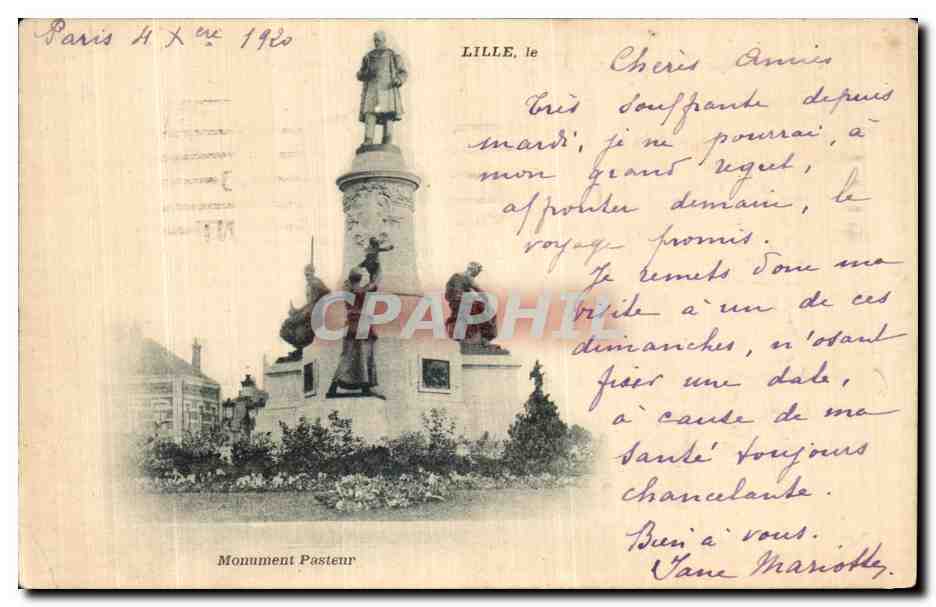 Paris 4 Xere 1920
LILLE, le
Chères Amies
Très souffrante depuis
mardi, je ne pourrai, à
mon grand regret,
affronter demain, le
voyage promis.
Je remets donc ma
visite à un de ces
dimanches, n'osant
fixer une date,
à cause de ma
santé toujours
chancelante.
Bien à vous.
Jane Mariotte,
CPAPHIL
Monument Pasteur